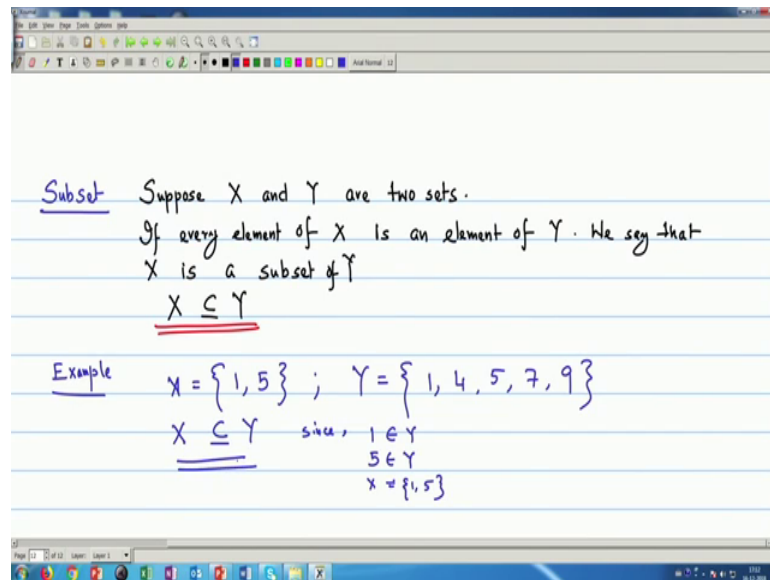 File Edit View Page Tools Options Help
Arial Normal 12
Subset Suppose X and Y are two sets.
If every element of X is an element of Y. We say that
X is a subset of Y
X ⊆ Y
Example X = {1, 5} ; Y = {1, 4, 5, 7, 9}
X ⊆ Y since, 1 ∈ Y
5 ∈ Y
X = {1, 5}
Page 12 of 12 Layer: Layer 1
17:12